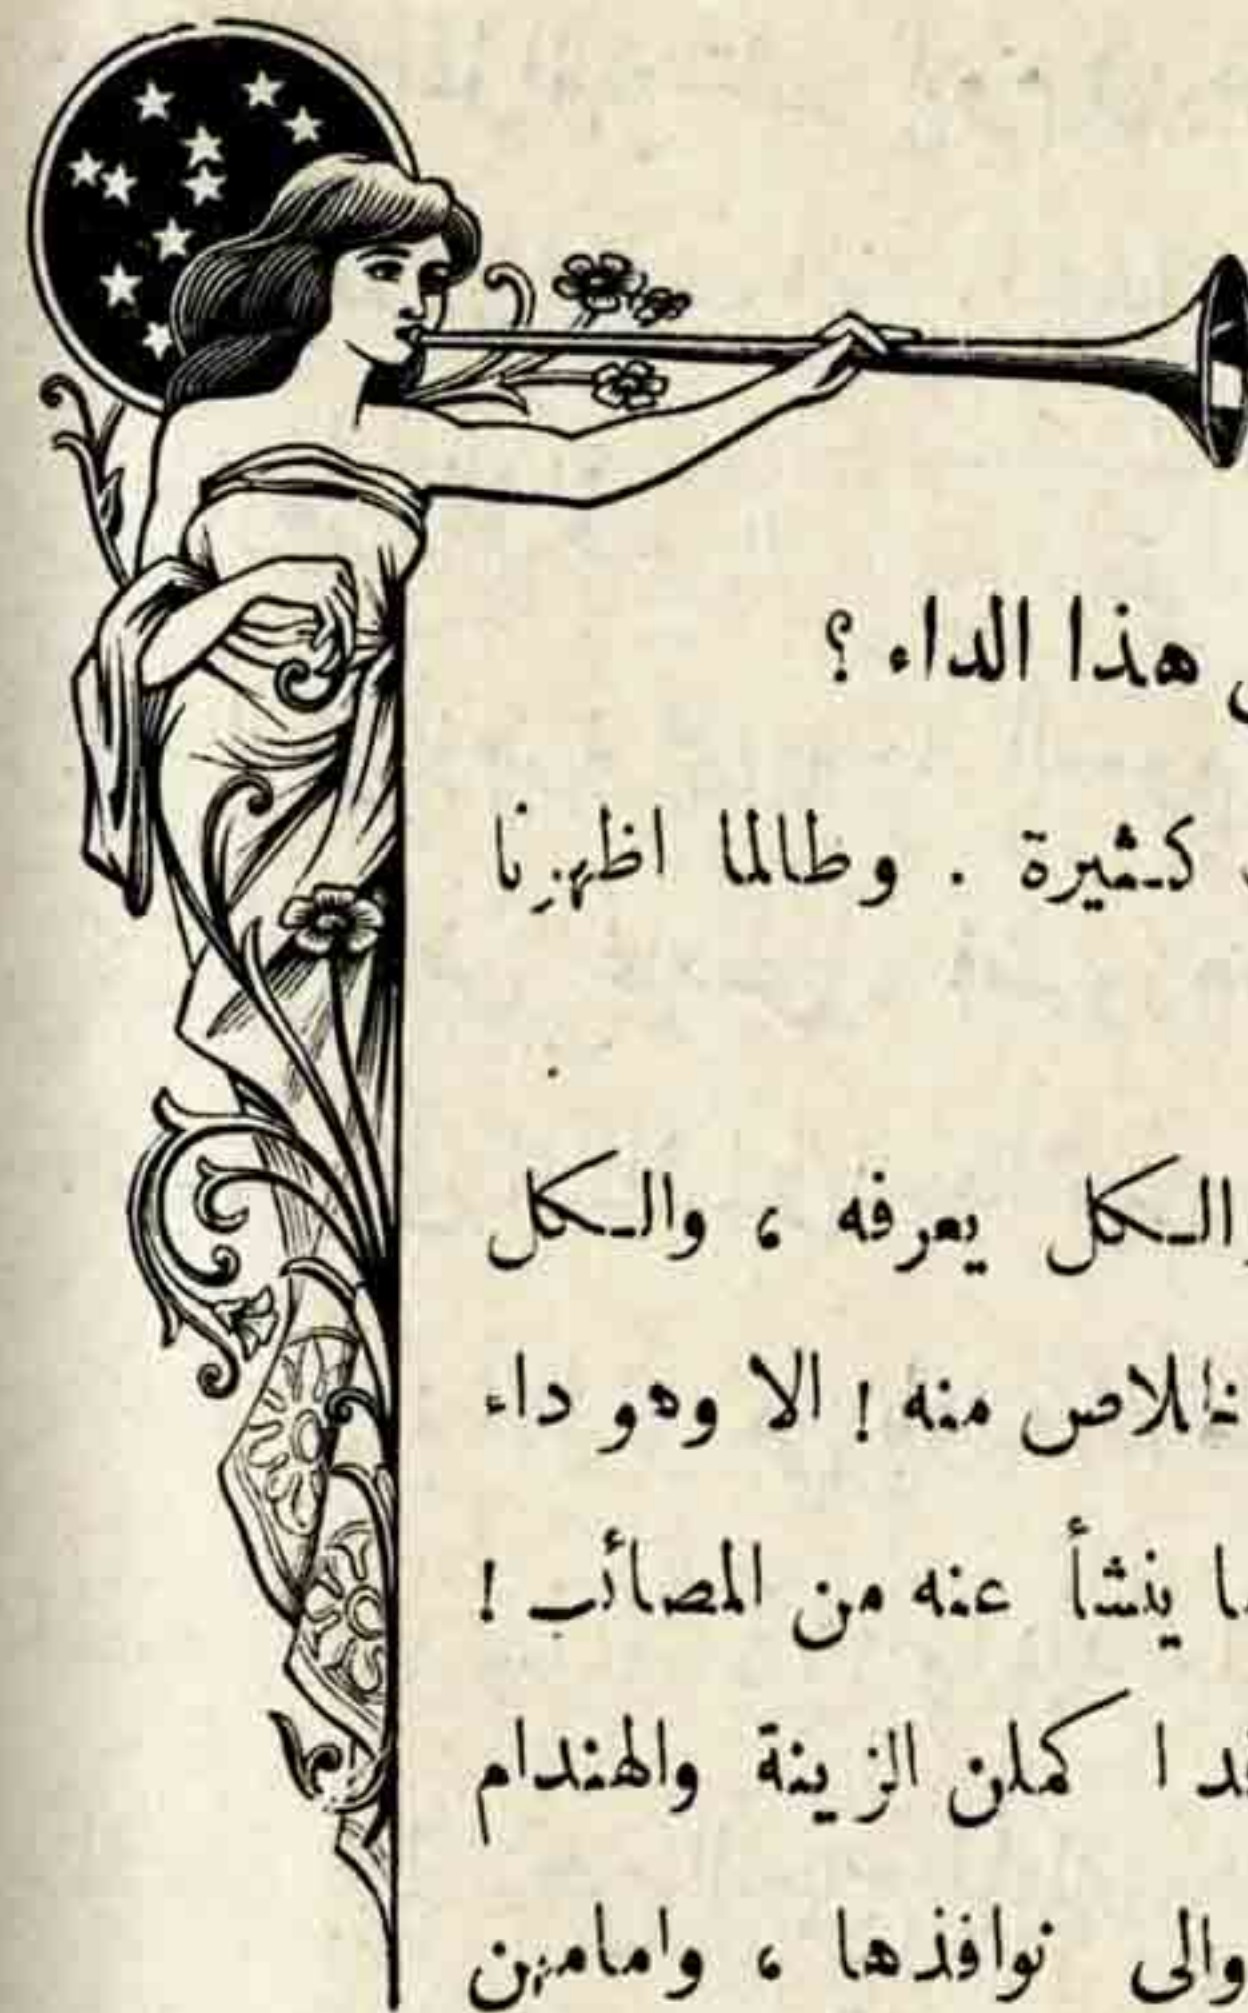 هذا الداء ؟
كثيرة . وطالما اظهرنا
والكل يعرفه ، والكل
منه ! الا وهو داء
ينشأ عنه من المصائب !
ا كملن الزينة والهندام
والى نوافذها ، وامامهن